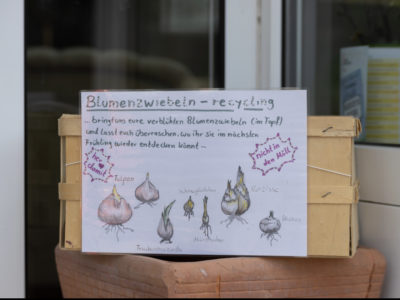 Blumenzwiebeln - recycling
... bringt uns eure verblühten Blumenzwiebeln (im Topf)
und lasst euch überraschen, wo ihr sie im nächsten
Frühling wieder entdecken könnt ...
her
damit
nicht in
den Müll
Tulpen
Narzisse
Traubenhyazinthe